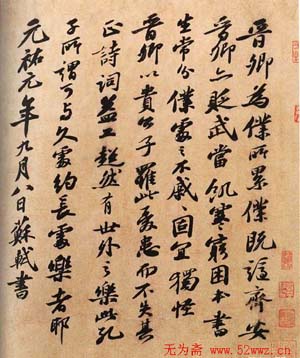 晉卿為僕所累僕既謫齊安
晉卿亦貶武當飢寒窮困本書
生常分僕處之不戚固宜獨怪
晉卿以貴公子罹此憂患而不失其
正詩詞益工超然有世外之樂此孔
子所謂可与久處約長處樂者耶
元祐元年九月八日蘇軾書
无为斋 - www.52wwz.cn